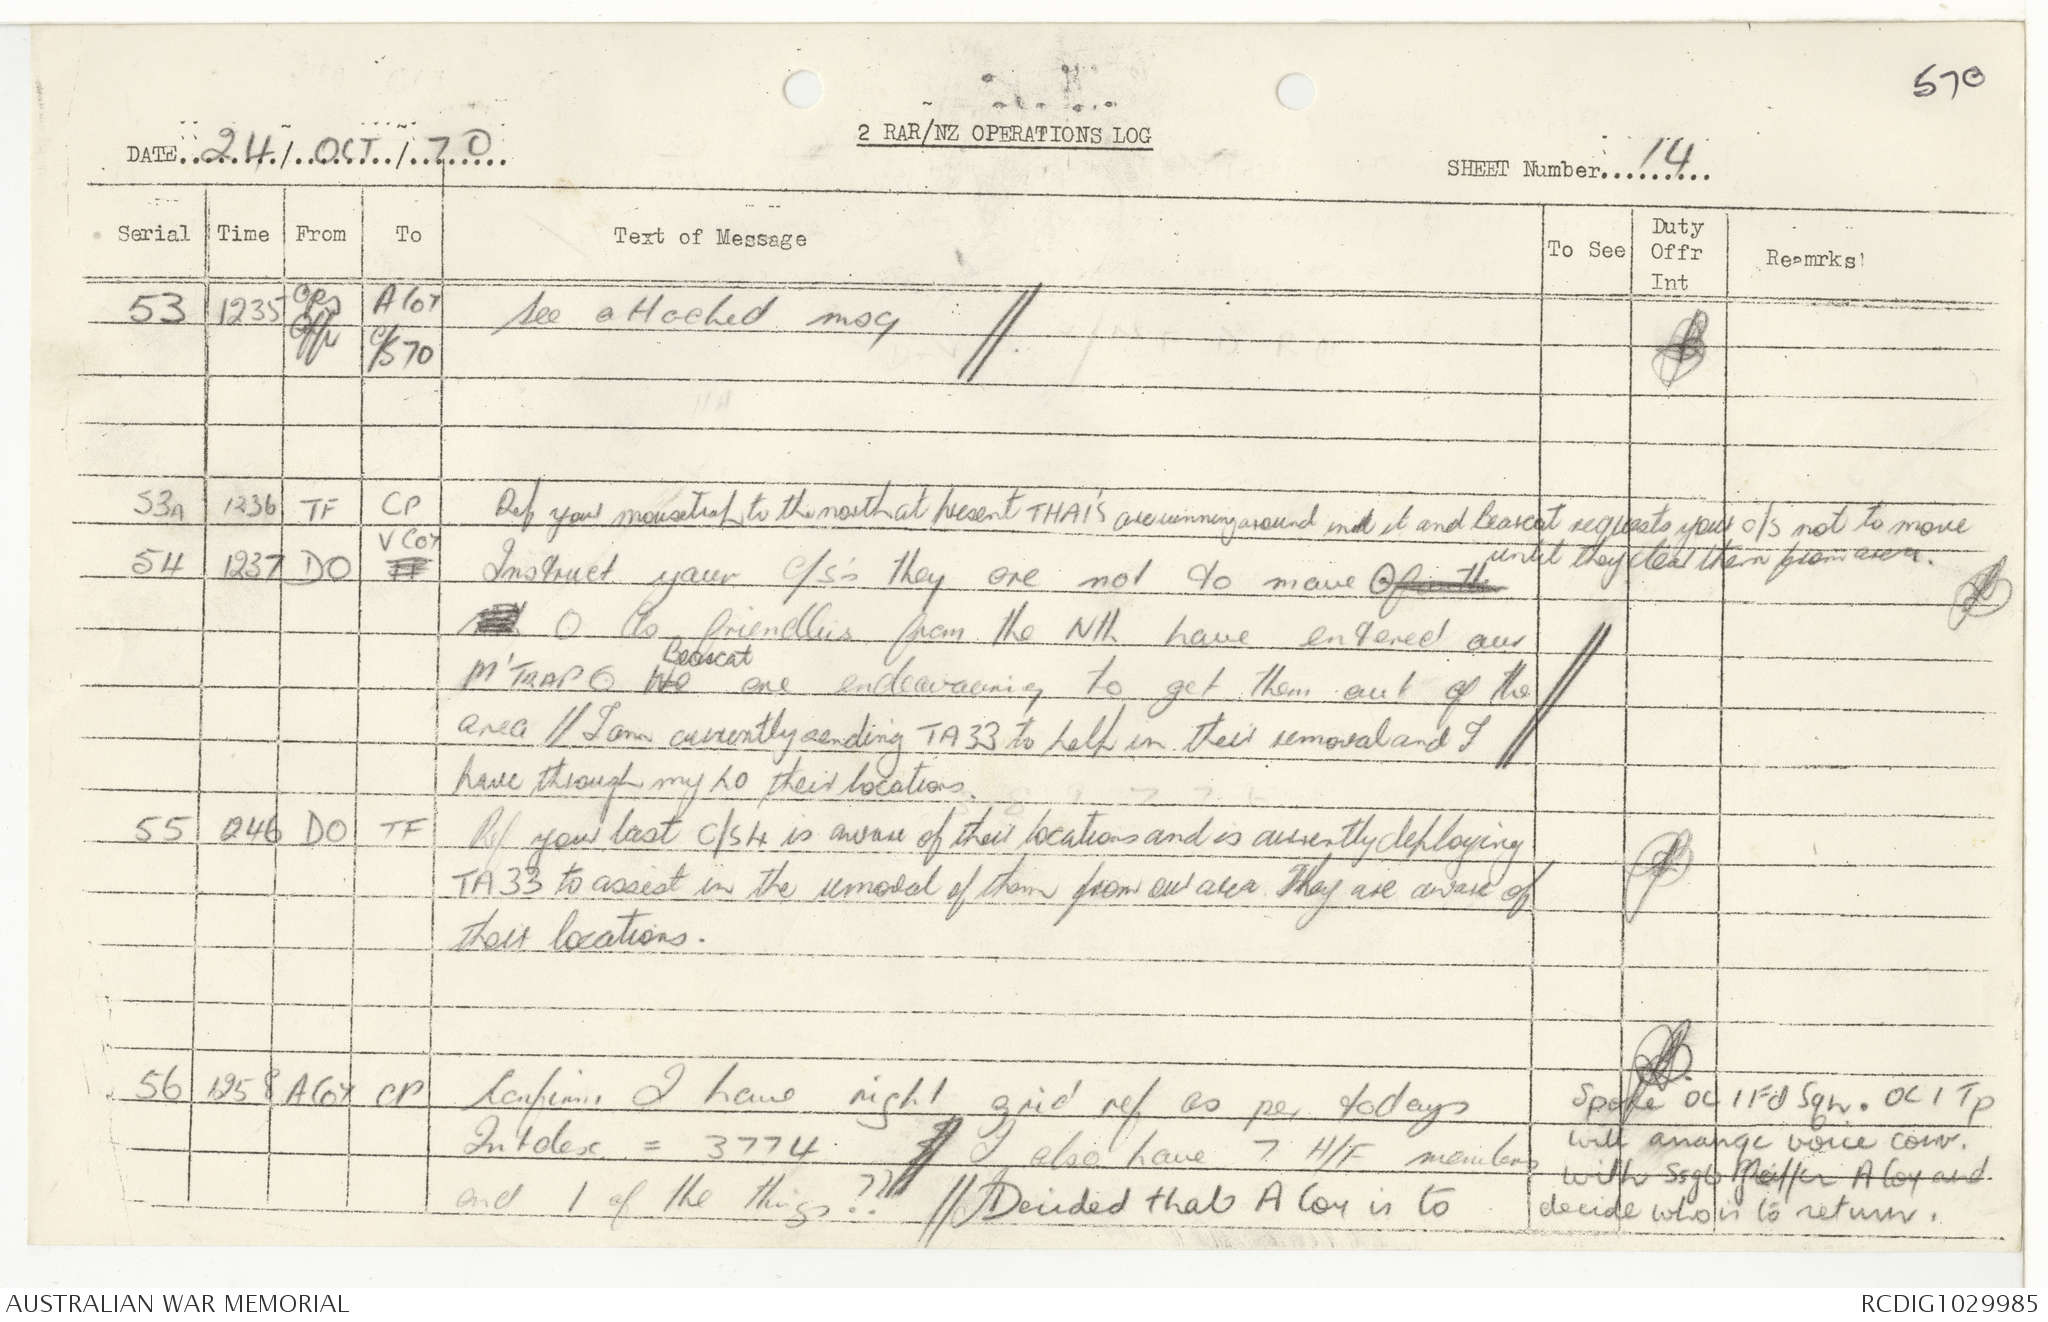 570
DATE 24 / OCT / 70
2 RAR/NZ OPERATIONS LOG
SHEET Number 14
Serial Time From To Text of Message To See Duty Offr Int Reamrks
53 1235 Ops Offr A Coy C/S 70 See attached msg //
53A 1236 TF CP Ref your mousetrap to the north at present THAI's are running around in it and Bearcat requests your c/s not to move
until they clear them from area.
54 1237 DO V Coy Instruct your c/s's they are not to move O
O Co friendlies from the Nth have entered our
M'TRAP O Bearcat are endeavouring to get them out of the
area // I am currently sending TA33 to help in their removal and I
have through my LO their locations.
55 1246 DO TF Ref your last C/S 4 is aware of their locations and is currently deploying
TA 33 to assist in the removal of them from our area. They are aware of
their locations.
56 1258 A Coy CP Confirm I have right grid ref as per todays
Intdex = 3774 // I also have 7 H/F members
and 1 of the things?? // Decided that A Coy is to
Spoke OC 1 Fd Sqn. OC 1 Tp
will arrange voice conv.
with A Coy and
decide who is to return.
AUSTRALIAN WAR MEMORIAL
RCDIG1029985